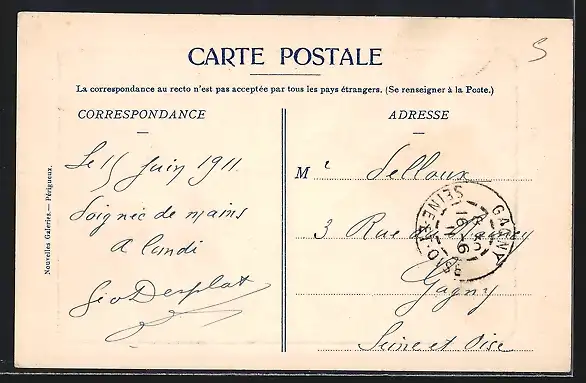 5
CARTE POSTALE
La correspondance au recto n'est pas acceptée par tous les pays étrangers. (Se renseigner à la Poste.)
CORRESPONDANCE
Le 15 Juin 1911
Poignée de mains
A lundi
Géo Desplat
Nouvelles Galeries. — Périgueux.
ADRESSE
Mr Selloux
3 Rue du Raincy
Gagny
Seine et Oise
GAGNY
16-6
11
SEINE-ET-OISE